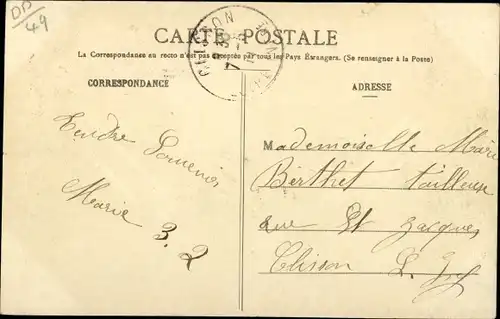 DD
49
CARTE POSTALE
La Correspondance au recto n'est pas acceptée par tous les Pays Étrangers. (Se renseigner à la Poste)
CORRESPONDANCE
ADRESSE
Tendre Souvenir
Marie
3.2
Mademoiselle Marie
Berthet tailleuse
rue St Jacques
Clisson L. Inf